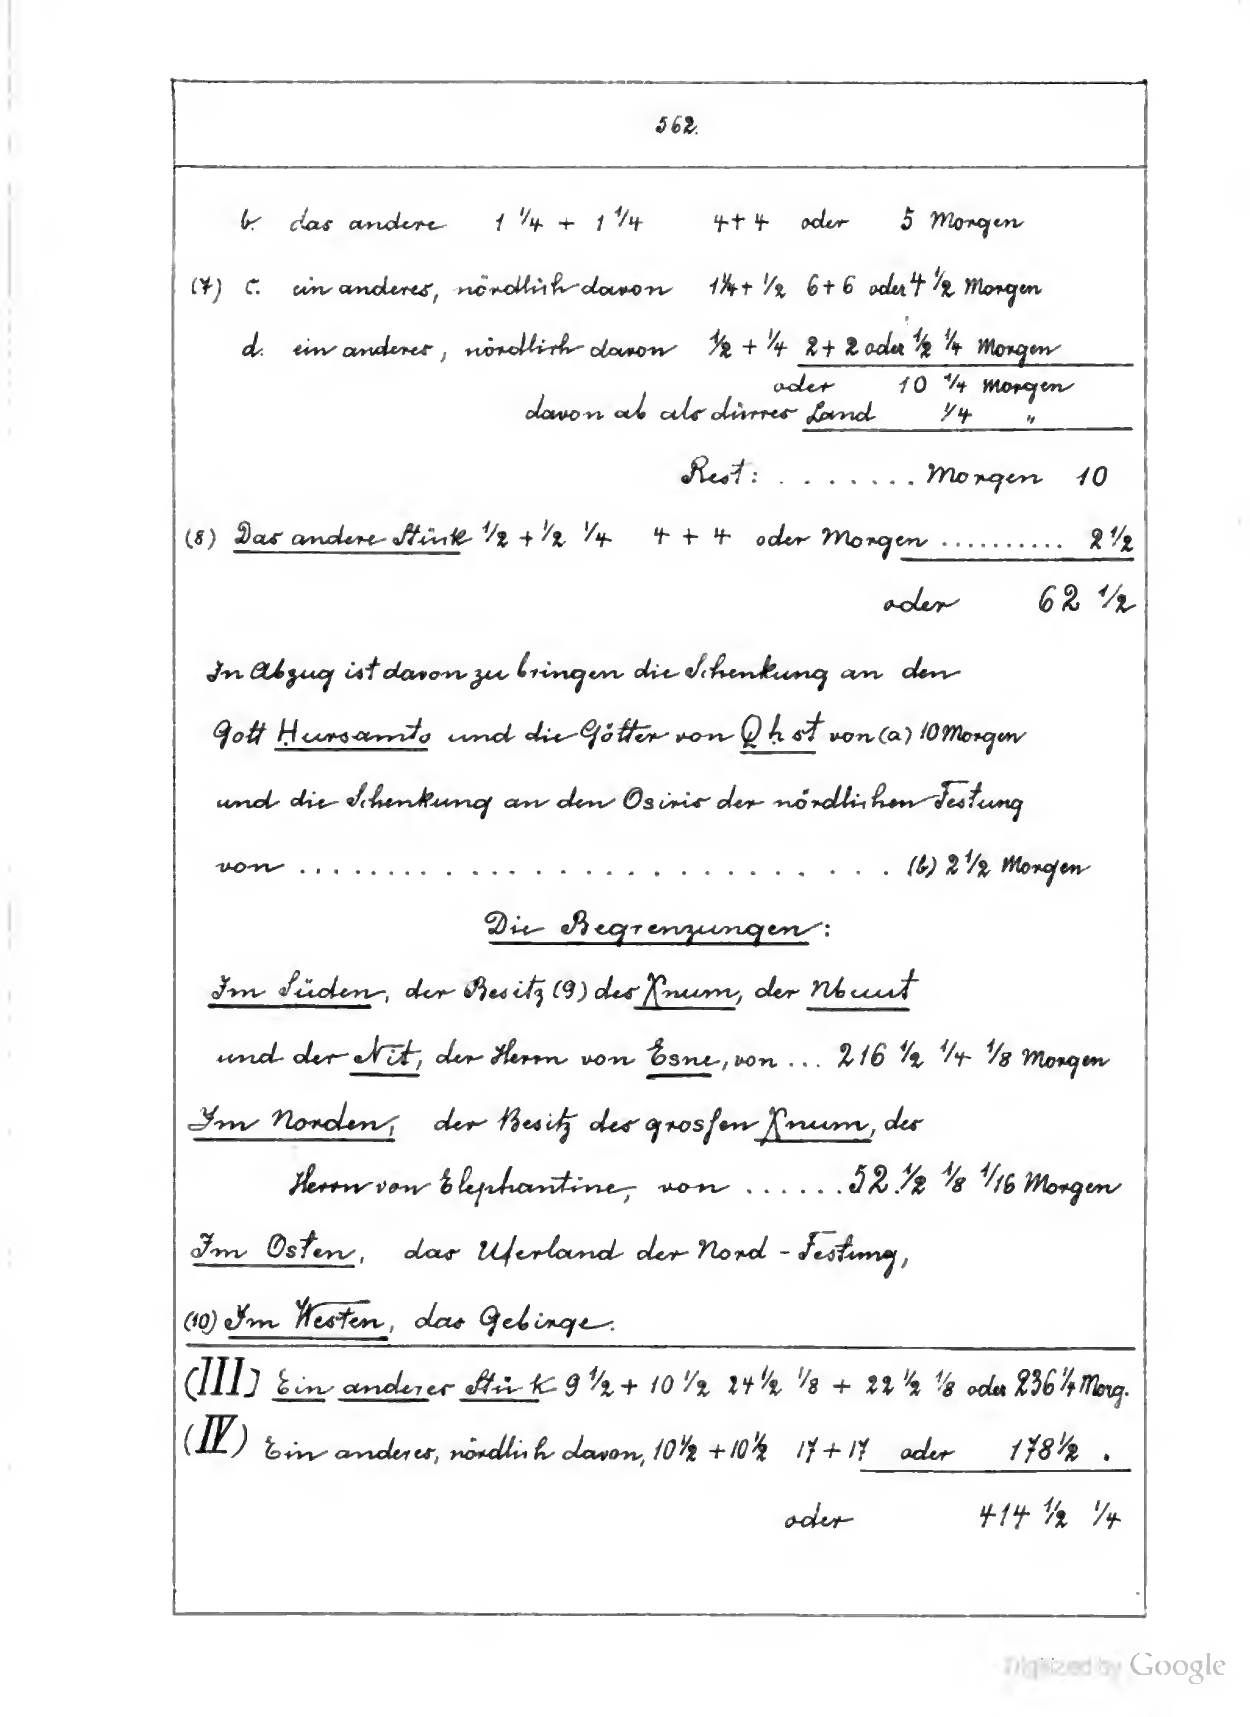 562.
b. das andere 1 1/4 + 1 1/4 4+4 oder 5 Morgen
(7) c. ein anderes, nördlich davon 1 1/4 + 1/2 6+6 oder 4 1/2 Morgen
d. ein anderes, nördlich davon 1/2 + 1/4 2+2 oder 1/2 1/4 Morgen
oder 10 1/4 Morgen
davon ab als dürres Land 1/4 "
Rest: ........ Morgen 10
(8) Das andere Stük 1/2 + 1/2 1/4 4 + 4 oder Morgen .......... 2 1/2
oder 62 1/2
In Abzug ist davon zu bringen die Schenkung an den
Gott Ḥursamto und die Götter von Qḥst von (a) 10 Morgen
und die Schenkung an den Osiris der nördlichen Festung
von ..................... (b) 2 1/2 Morgen
Die Begrenzungen:
Im Süden, der Besitz (9) des Xnum, der Nbuut
und der Nit, der Herrn von Esne, von ... 216 1/2 1/4 1/8 Morgen
Im Norden, der Besitz des grossen Xnum, des
Herrn von Elephantine, von ...... 52. 1/2 1/8 1/16 Morgen
Im Osten, das Uferland der Nord-Festung,
(10) Im Westen, das Gebirge.
(III) Ein anderes Stük 9 1/2 + 10 1/2 24 1/2 1/8 + 22 1/2 1/8 oder 236 1/4 Morg.
(IV) Ein anderes, nördlich davon, 10 1/2 + 10 1/2 17 + 17 oder 178 1/2 .
oder 414 1/2 1/4
Digitized by Google